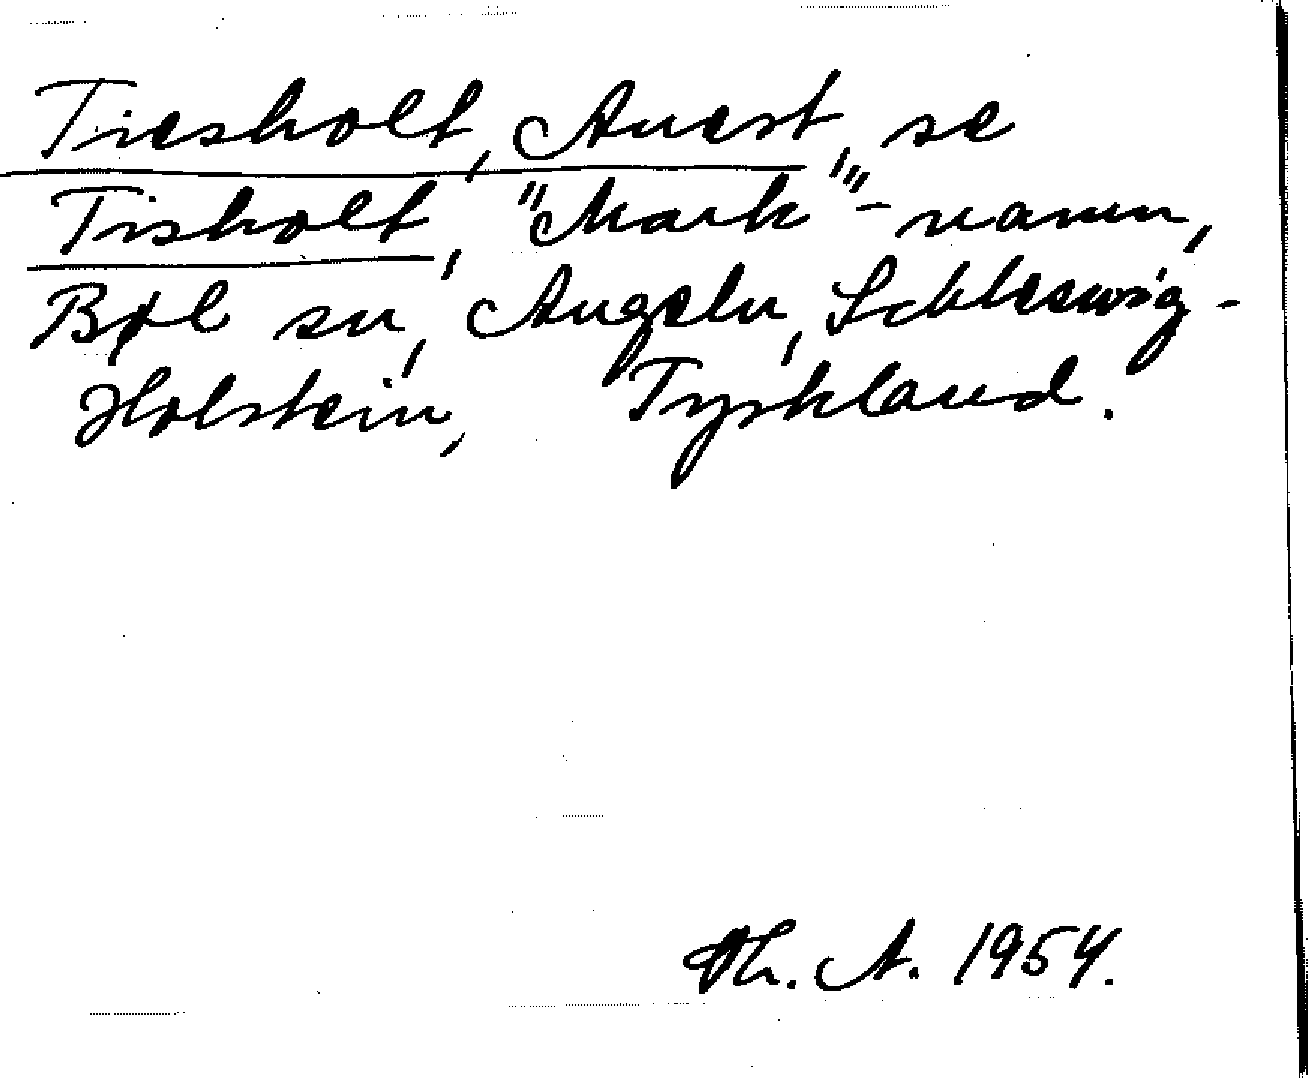 Tiesholt, Auest, se
Tisholt, "Mark"-namn,
Bøl sn, Angeln, Schleswig-
Holstein, Tyskland.
Th. A. 1954.